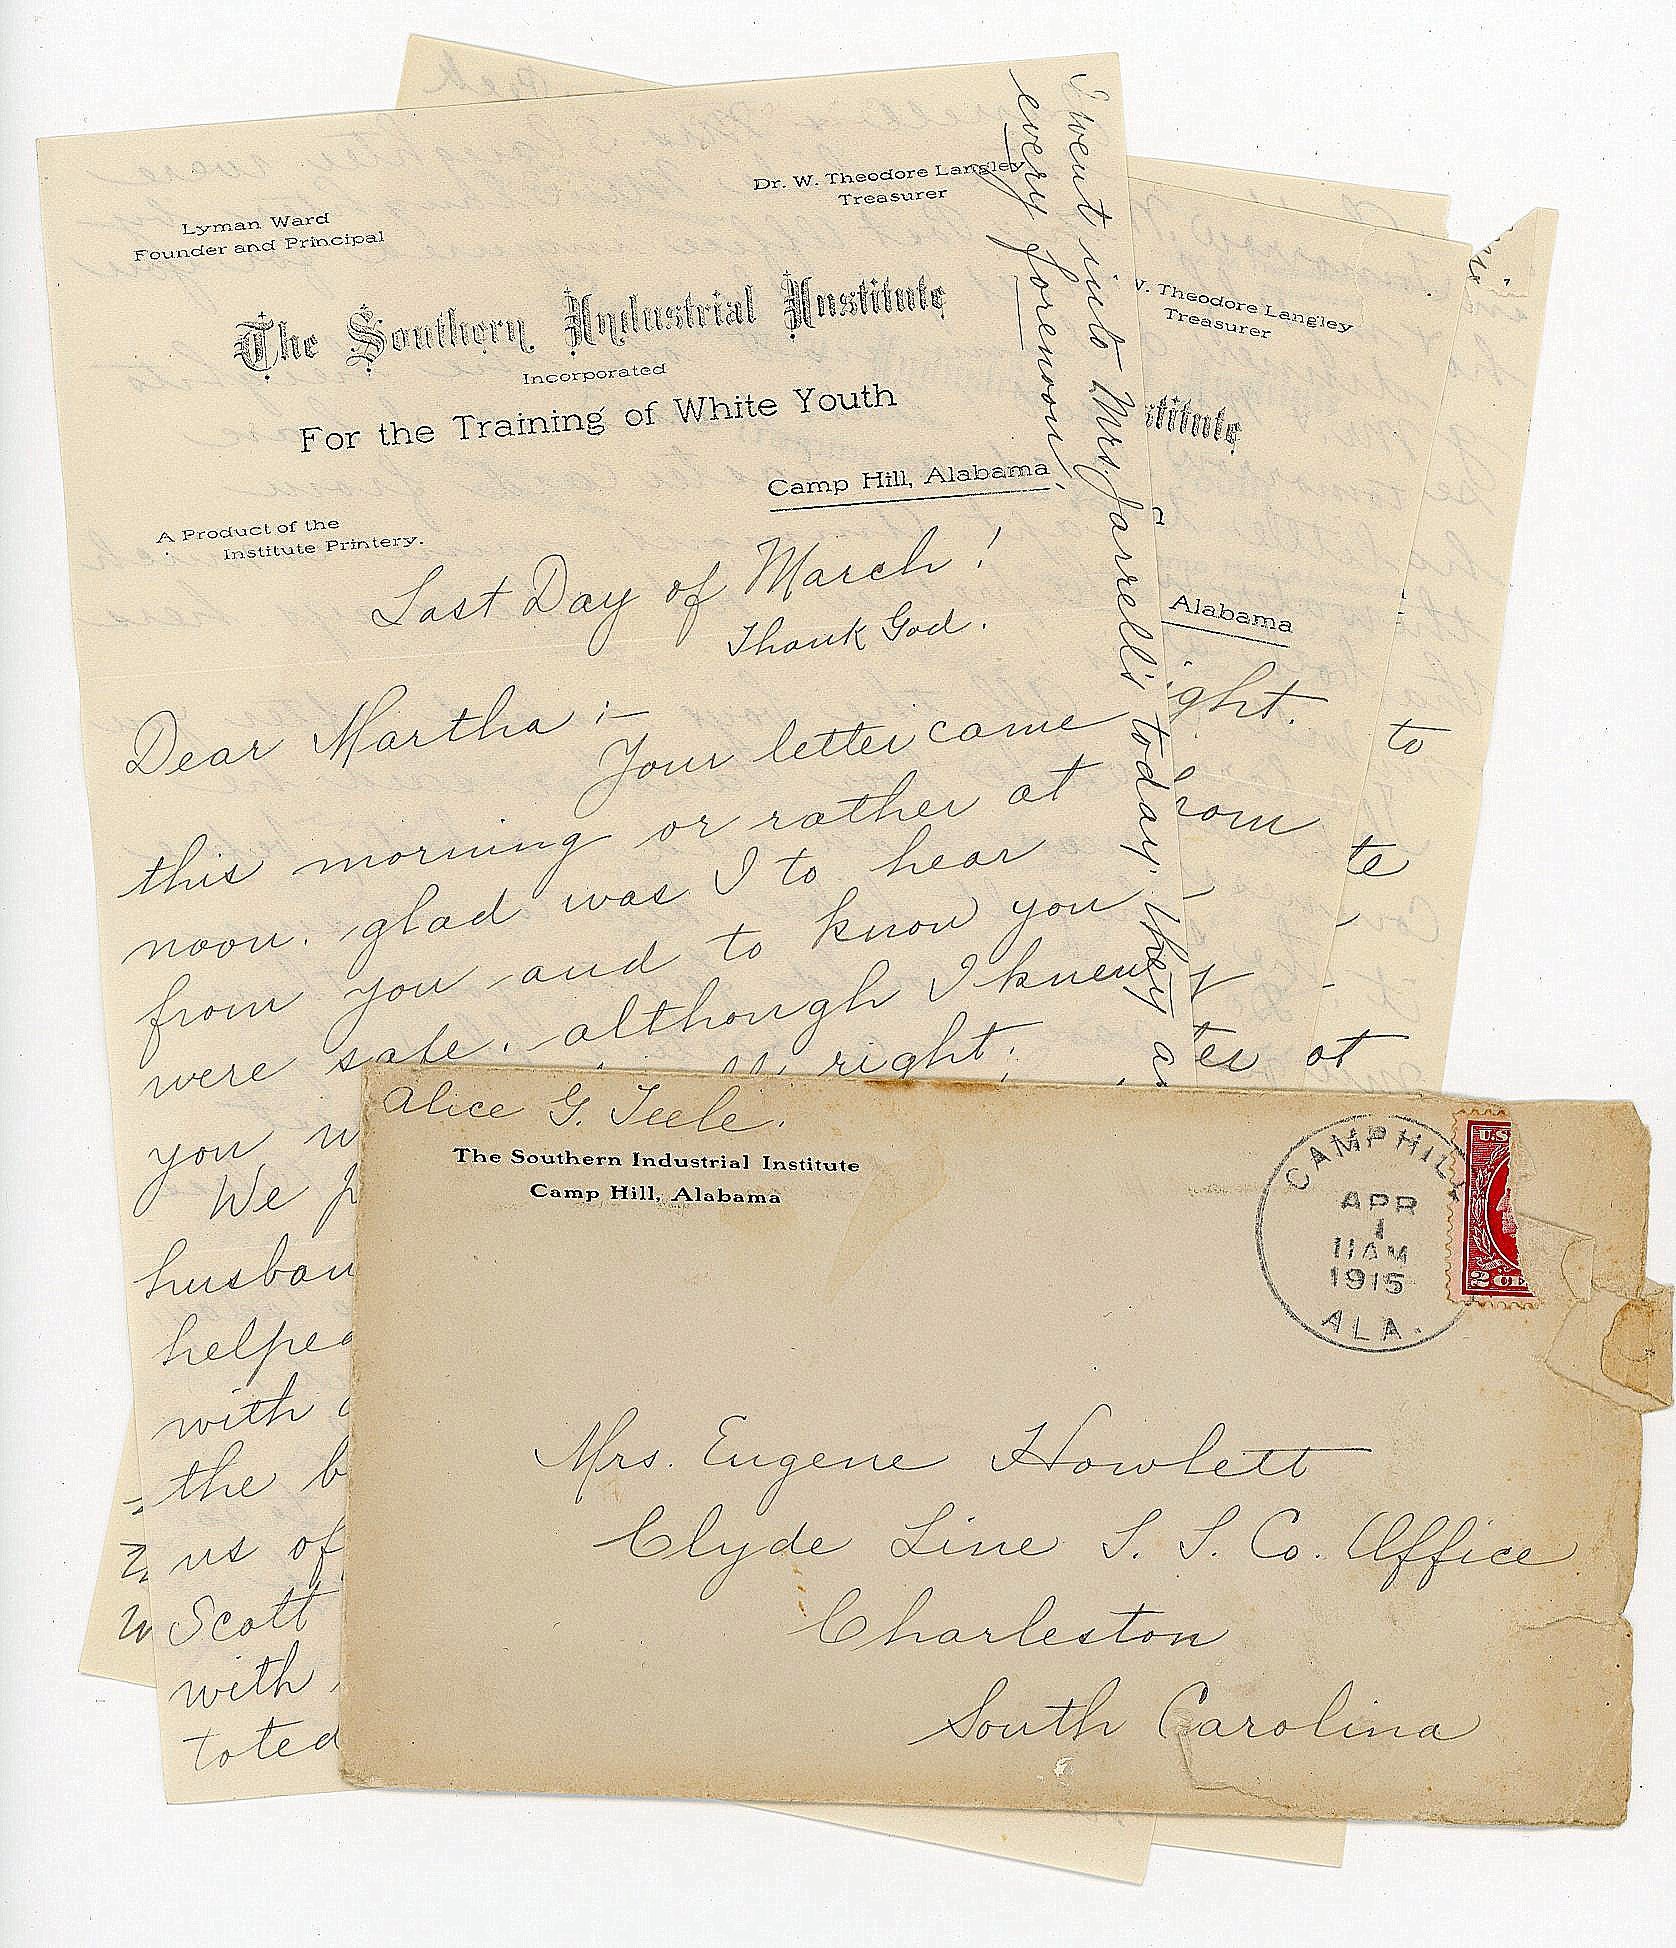 Lyman Ward
Founder and Principal
Dr. W. Theodore Langley
Treasurer
The Southern Industrial Institute
Incorporated
For the Training of White Youth
Camp Hill, Alabama
A Product of the
Institute Printery.
Last Day of March!
Thank God.
Dear Martha:—
Your letter came
this morning or rather at
noon. glad was I to hear
from you and to know you
were safe. although I knew
right;
you
We
husban
helped
with
the b
us of
Scott
with
toted
I went into Mrs. Jarrell's today. They a
every forenoon,
W. Theodore Langley
Treasurer
stitute
Alabama
ight.
rom
ter at
to
te
Alice G. Teele.
The Southern Industrial Institute
Camp Hill, Alabama
CAMP HILL
APR
1
11 AM
1915
ALA.
U.S.
2 CE
Mrs. Eugene Howlett
Clyde Line S. S. Co. Office
Charleston
South Carolina